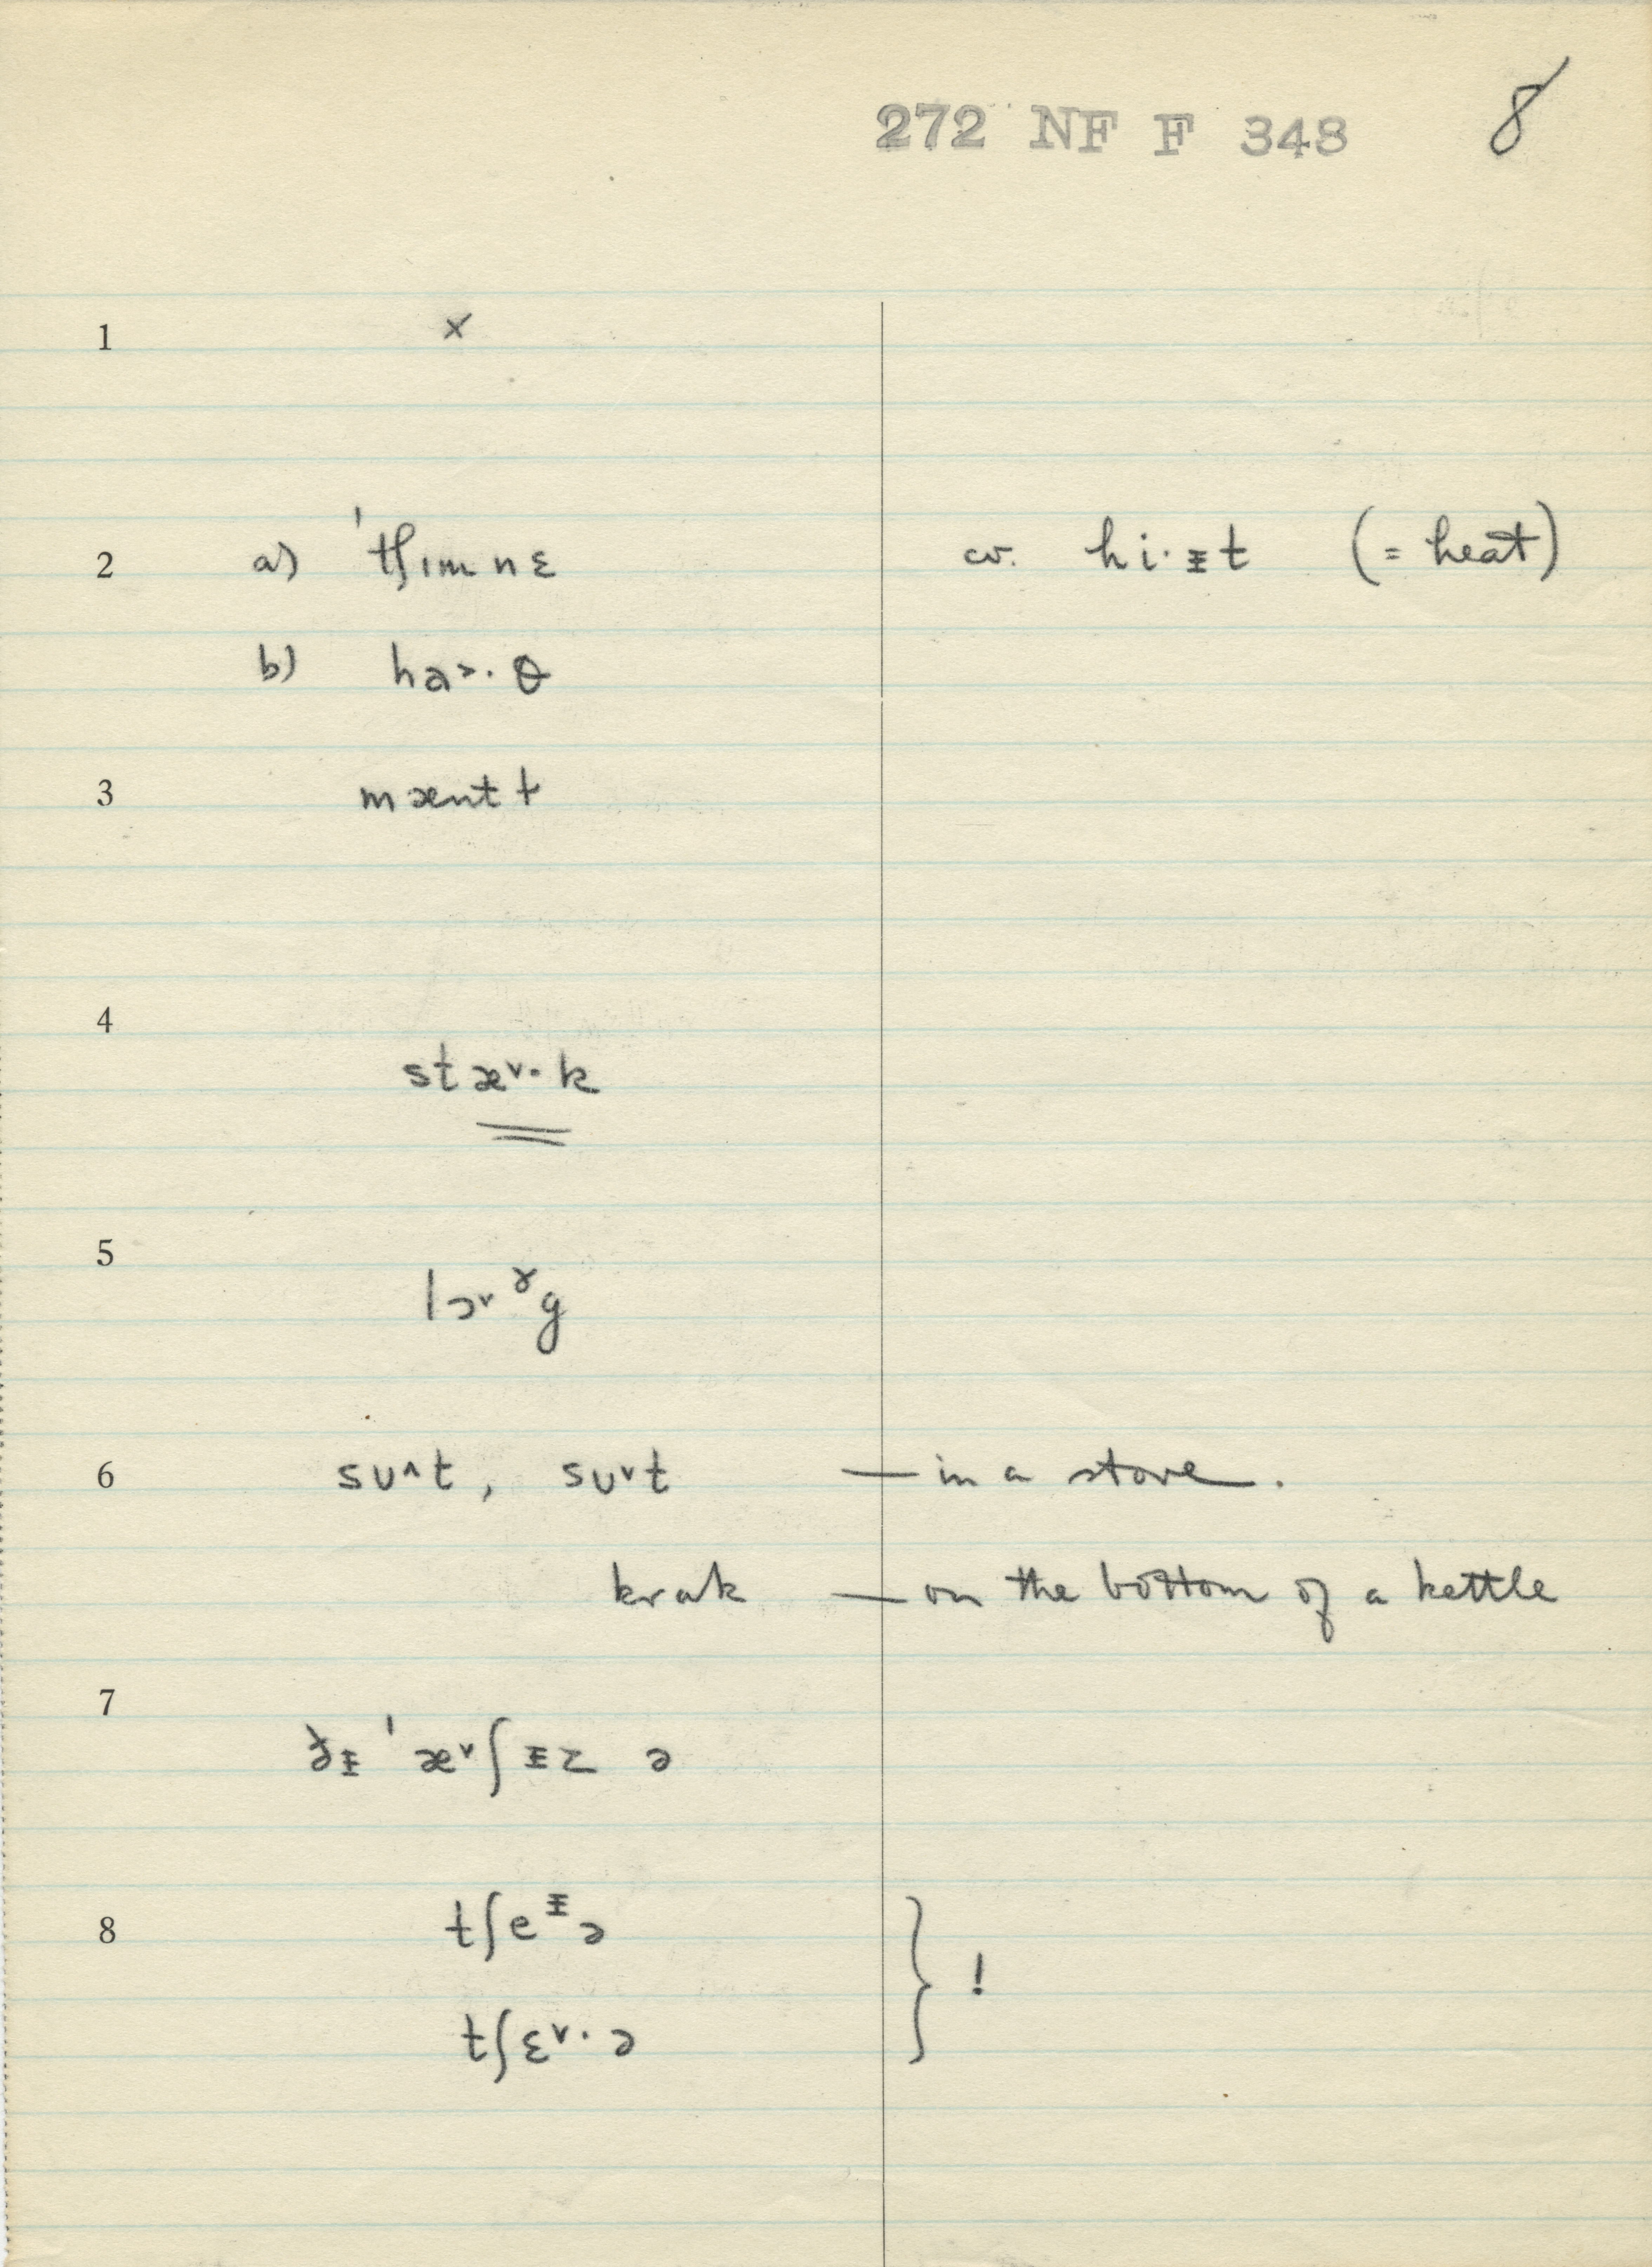 272 NF F 348 8
1 ×
2 a) ˈtʃɪmnɛ cv. hi·ᵻt (= heat)
b) ha˃·θ
3 mæntɫ
4 stæ˅·k
5 lɔ˅ˠg
6 sʊ˄t, sʊ˅t — in a stove.
krak — on the bottom of a kettle
7 ðᵻ ˈæ˅ʃᵻz ə
8 tʃeᵻə
tʃɛ˅·ə } !